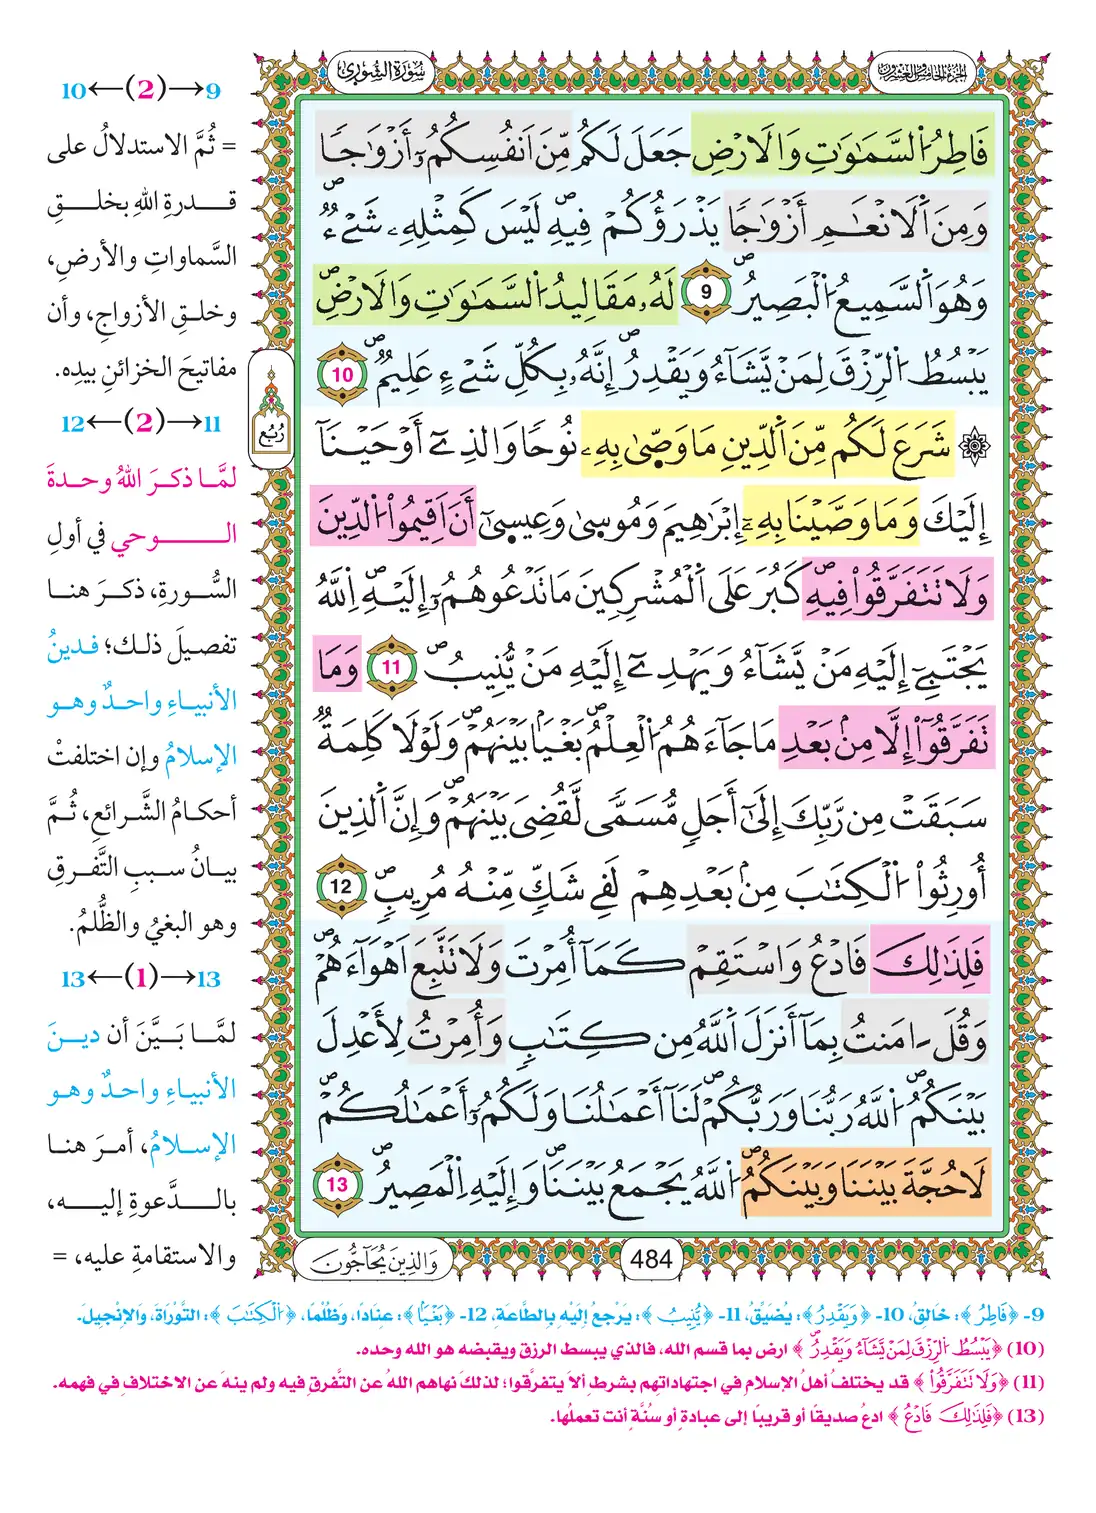 الجزء الخامس والعشرون
سورة الشورى
فَاطِرُ اُ۬لسَّمَٰوَٰتِ وَالَارْضِ جَعَلَ لَكُم مِّنَ اَنفُسِكُمُۥٓ أَزْوَٰجاٗ
وَمِنَ اَ۬لَانْعَٰمِ أَزْوَٰجاٗ يَذْرَؤُكُمْ فِيهِ لَيْسَ كَمِثْلِهِۦ شَےْءٞ
وَهُوَ اَ۬لسَّمِيعُ اُ۬لْبَصِيرُ 9 لَهُۥ مَقَالِيدُ اُ۬لسَّمَٰوَٰتِ وَالَارْضِ
يَبْسُطُ اُ۬لرِّزْقَ لِمَنْ يَّشَآءُ وَيَقْدِرُ إِنَّهُۥ بِكُلِّ شَےْءٍ عَلِيمٞ 10
۞ شَرَعَ لَكُم مِّنَ اَ۬لدِّينِ مَا وَصّ۪ىٰ بِهِۦ نُوحاٗ وَالذِےٓ أَوْحَيْنَآ
إِلَيْكَ وَمَا وَصَّيْنَا بِهِۦٓ إِبْرَٰهِيمَ وَمُوس۪ىٰ وَعِيس۪ىٰٓ أَنَ اَقِيمُواْ اُ۬لدِّينَ
وَلَا تَتَفَرَّقُواْ فِيهِ كَبُرَ عَلَى اَ۬لْمُشْرِكِينَ مَا تَدْعُوهُمُۥٓ إِلَيْهِ اِ۬للَّهُ
يَجْتَبِےٓ إِلَيْهِ مَنْ يَّشَآءُ وَيَهْدِےٓ إِلَيْهِ مَنْ يُّنِيبُ 11 وَمَا
تَفَرَّقُوٓاْ إِلَّا مِنۢ بَعْدِ مَا جَآءَهُمُ اُ۬لْعِلْمُ بَغْياَۢ بَيْنَهُمْ وَلَوْلَا كَلِمَةٞ
سَبَقَتْ مِن رَّبِّكَ إِلَىٰٓ أَجَلٖ مُّسَمّٗى لَّقُضِىَ بَيْنَهُمْ وَإِنَّ اَ۬لذِينَ
أُورِثُواْ اُ۬لْكِتَٰبَ مِنۢ بَعْدِهِمْ لَفِے شَكّٖ مِّنْهُ مُرِيبٖ 12
فَلِذَٰلِكَ فَادْعُ وَاسْتَقِمْ كَمَآ أُمِرْتَ وَلَا تَتَّبِعَ اَهْوَآءَهُمْ
وَقُلَ اٰمَنتُ بِمَآ أَنزَلَ اَ۬للَّهُ مِن كِتَٰبٖ وَأُمِرْتُ لِأَعْدِلَ
بَيْنَكُمُ اُ۬للَّهُ رَبُّنَا وَرَبُّكُمْ لَنَآ أَعْمَٰلُنَا وَلَكُمُۥٓ أَعْمَٰلُكُمْ
لَا حُجَّةَ بَيْنَنَا وَبَيْنَكُمُ اُ۬للَّهُ يَجْمَعُ بَيْنَنَا وَإِلَيْهِ اِ۬لْمَصِيرُ 13
رُبُع
484
وَالذِينَ يُحَآجُّونَ
9→(2)←10
= ثُمَّ الاستدلالُ على
قدرةِ اللهِ بخلقِ
السَّماواتِ والأرضِ،
وخلقِ الأزواجِ، وأن
مفاتيحَ الخزائنِ بيدِه.
11→(2)←12
لمَّا ذكرَ اللهُ وحدةَ
الوحي في أولِ
السُّورةِ، ذكرَ هنا
تفصيلَ ذلك؛ فدينُ
الأنبياءِ واحدٌ وهو
الإسلامُ وإن اختلفتْ
أحكامُ الشَّرائعِ، ثُمَّ
بيانُ سببِ التَّفرقِ
وهو البغيُ والظُّلمُ.
13→(1)←13
لمَّا بَيَّنَ أن دينَ
الأنبياءِ واحدٌ وهو
الإسلامُ، أمرَ هنا
بالدَّعوةِ إليه،
والاستقامةِ عليه، =
9- ﴿فَاطِرُ﴾: خَالقُ، 10- ﴿وَيَقْدِرُ﴾: يُضَيِّقُ، 11- ﴿يُّنِيبُ﴾: يَرْجعُ إلَيْه بِالطَّاعَة، 12- ﴿بَغْياَۢ﴾: عِنَادًا، وَظُلْمًا، ﴿اُ۬لْكِتَٰبَ﴾: التَّوْرَاةَ، وَالإِنْجِيلَ.
(10) ﴿يَبْسُطُ اُ۬لرِّزْقَ لِمَنْ يَّشَآءُ وَيَقْدِرُ﴾ ارض بما قسم الله، فالذي يبسط الرزق ويقبضه هو الله وحده.
(11) ﴿وَلَا تَتَفَرَّقُواْ﴾ قد يختلفُ أهلُ الإسلامِ في اجتهاداتِهم بشرطِ ألا يتفرَّقوا؛ لذلكَ نهاهم اللهُ عن التَّفرقِ فيه ولم ينهَ عن الاختلافِ في فهمه.
(13) ﴿فَلِذَٰلِكَ فَادْعُ﴾ ادعُ صديقًا أو قريبًا إلى عبادةٍ أو سُنَّةٍ أنت تعملُها.